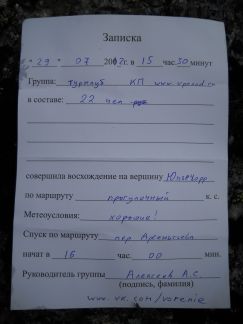 Записка
"29" 07 2012г. в 15 час.50 минут
Группа: турклуб КП www.
в составе: 22 чел
совершила восхождение на вершину
по маршруту прогулочный к. с.
Метеоусловия: хорошие!
Спуск по маршруту пер Арсеньева
начат в 16 час. 00 мин.
Руководитель группы Алексеев А.С.
(подпись, фамилия)
www.vk.com/varenie